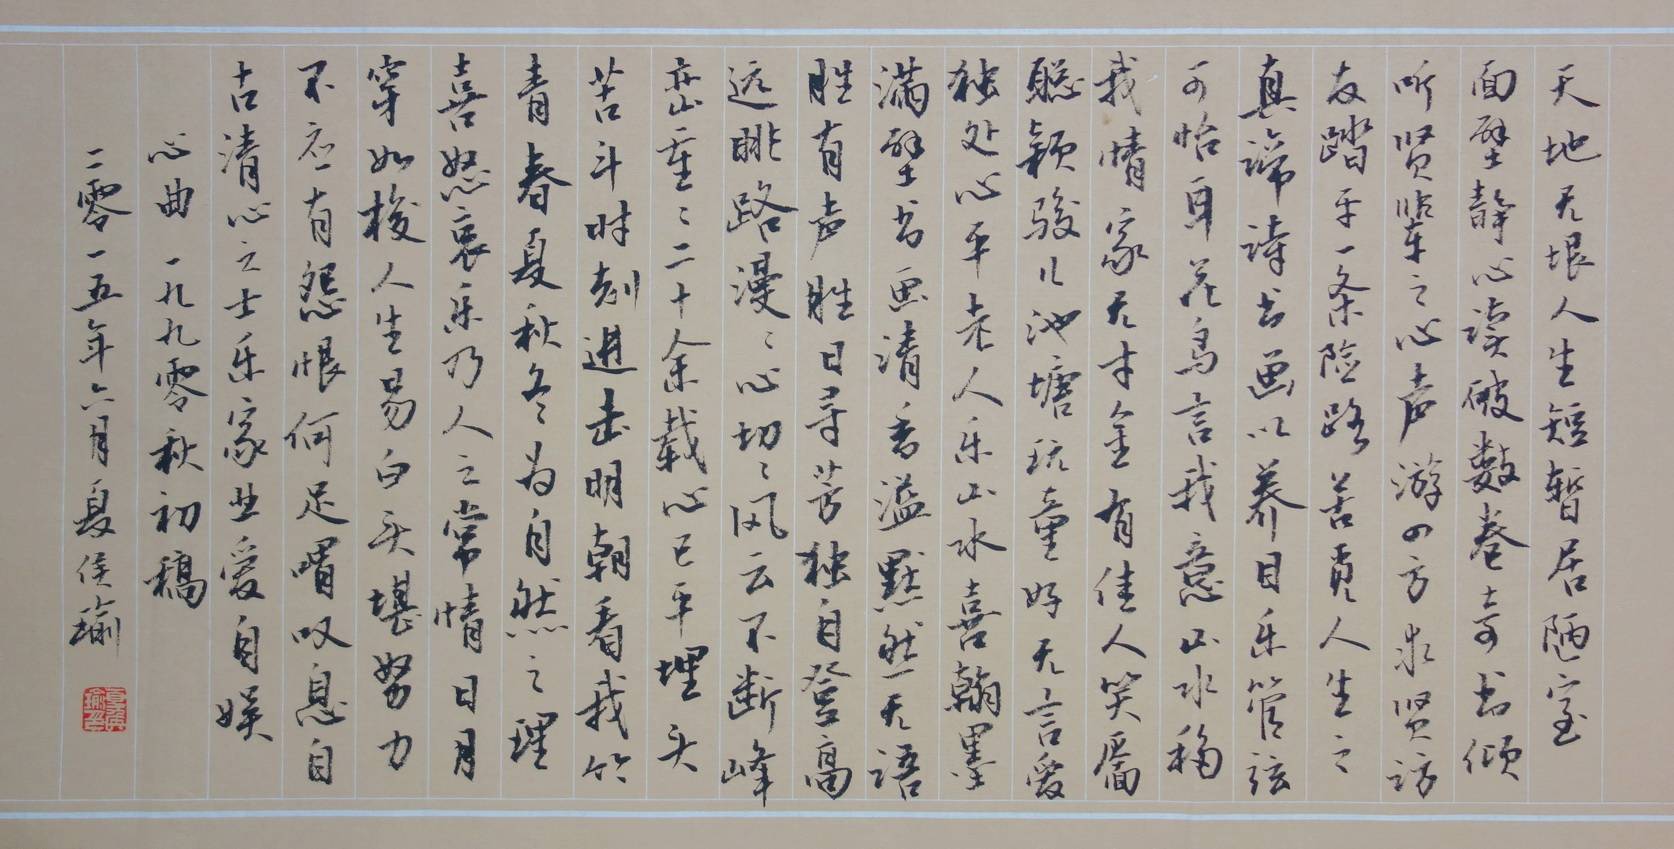 天地无垠人生短暂居陋室
面壁静心读破数卷奇书倾
听贤哲之心声游四方求贤访
友踏平一条险路苦觅人生之
真谛诗书画以养目乐管弦
可怡耳花鸟言我意山水移
我情家无才金有佳人笑靥
聪颖骏儿池塘玩童好无言爱
独处心平老人乐山水喜翰墨
满壁书画清香溢默然无语
胜有声胜日寻芳独自登高
远眺路漫漫心切切风云不断峰
峦重重二十余载心已平埋头
苦斗时刻进击明朝看我今
青春夏秋冬为自然之理
喜怒哀乐乃人之常情日月
穿如梭人生易白头堪努力
不应有怨恨何足喟叹息自
古清心之士乐寂寞自娱
心曲一九九零秋初稿
二零一五年六月夏侯瑜